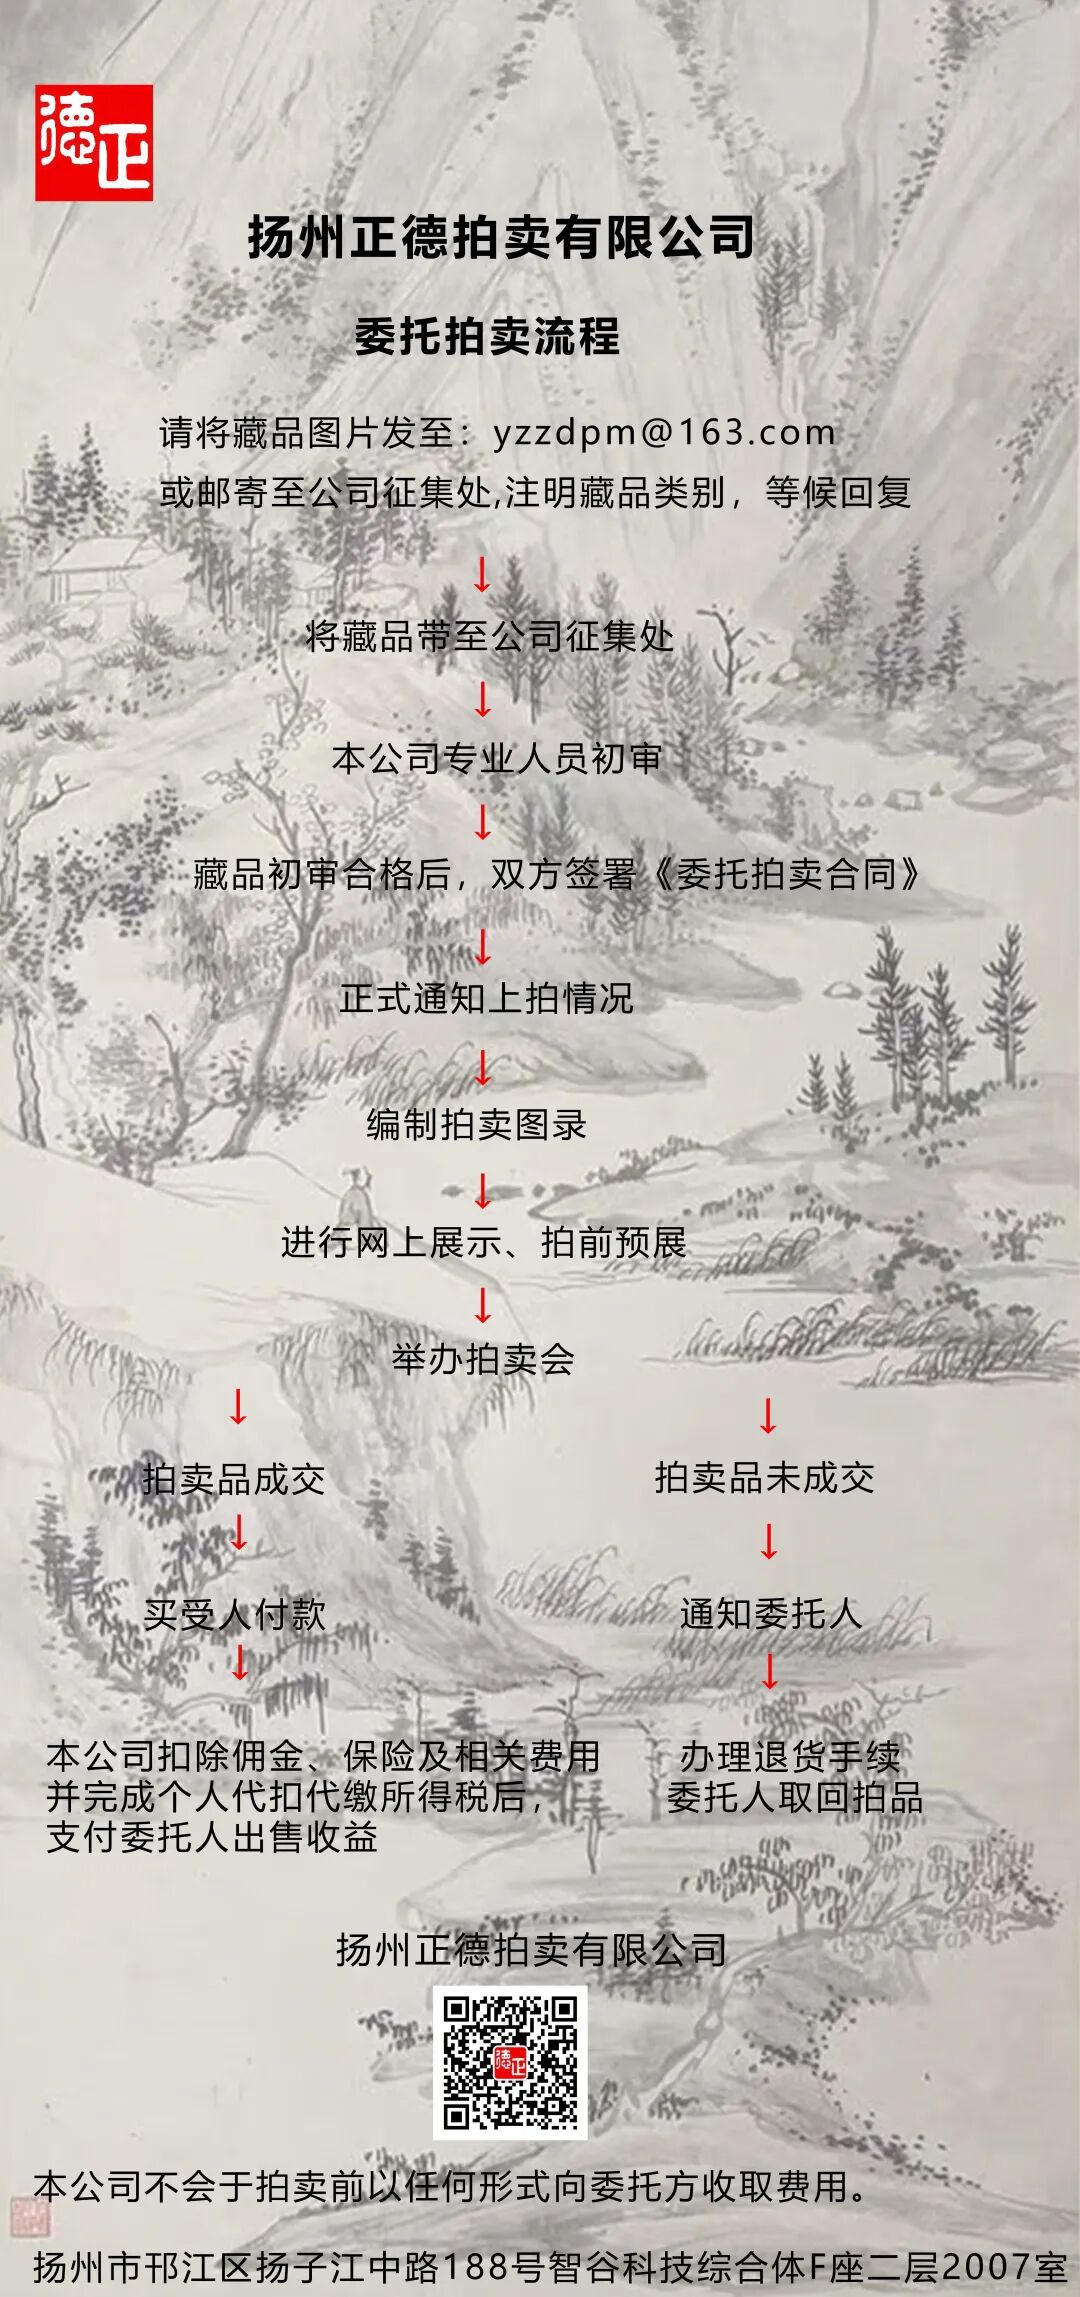 德正
扬州正德拍卖有限公司
委托拍卖流程
请将藏品图片发至：yzzdpm@163.com
或邮寄至公司征集处,注明藏品类别，等候回复
↓
将藏品带至公司征集处
↓
本公司专业人员初审
↓
藏品初审合格后，双方签署《委托拍卖合同》
↓
正式通知上拍情况
↓
编制拍卖图录
↓
进行网上展示、拍前预展
↓
举办拍卖会
↓ ↓
拍卖品成交 拍卖品未成交
↓ ↓
买受人付款 通知委托人
↓ ↓
本公司扣除佣金、保险及相关费用
并完成个人代扣代缴所得税后，
支付委托人出售收益
办理退货手续
委托人取回拍品
扬州正德拍卖有限公司
德正
本公司不会于拍卖前以任何形式向委托方收取费用。
扬州市邗江区扬子江中路188号智谷科技综合体F座二层2007室